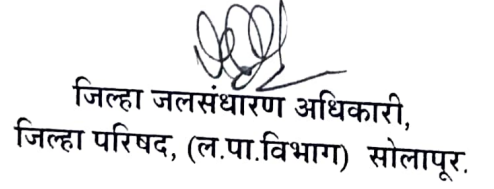 जिल्हा जलसंधारण अधिकारी,
जिल्हा परिषद, (ल.पा.विभाग) सोलापूर.